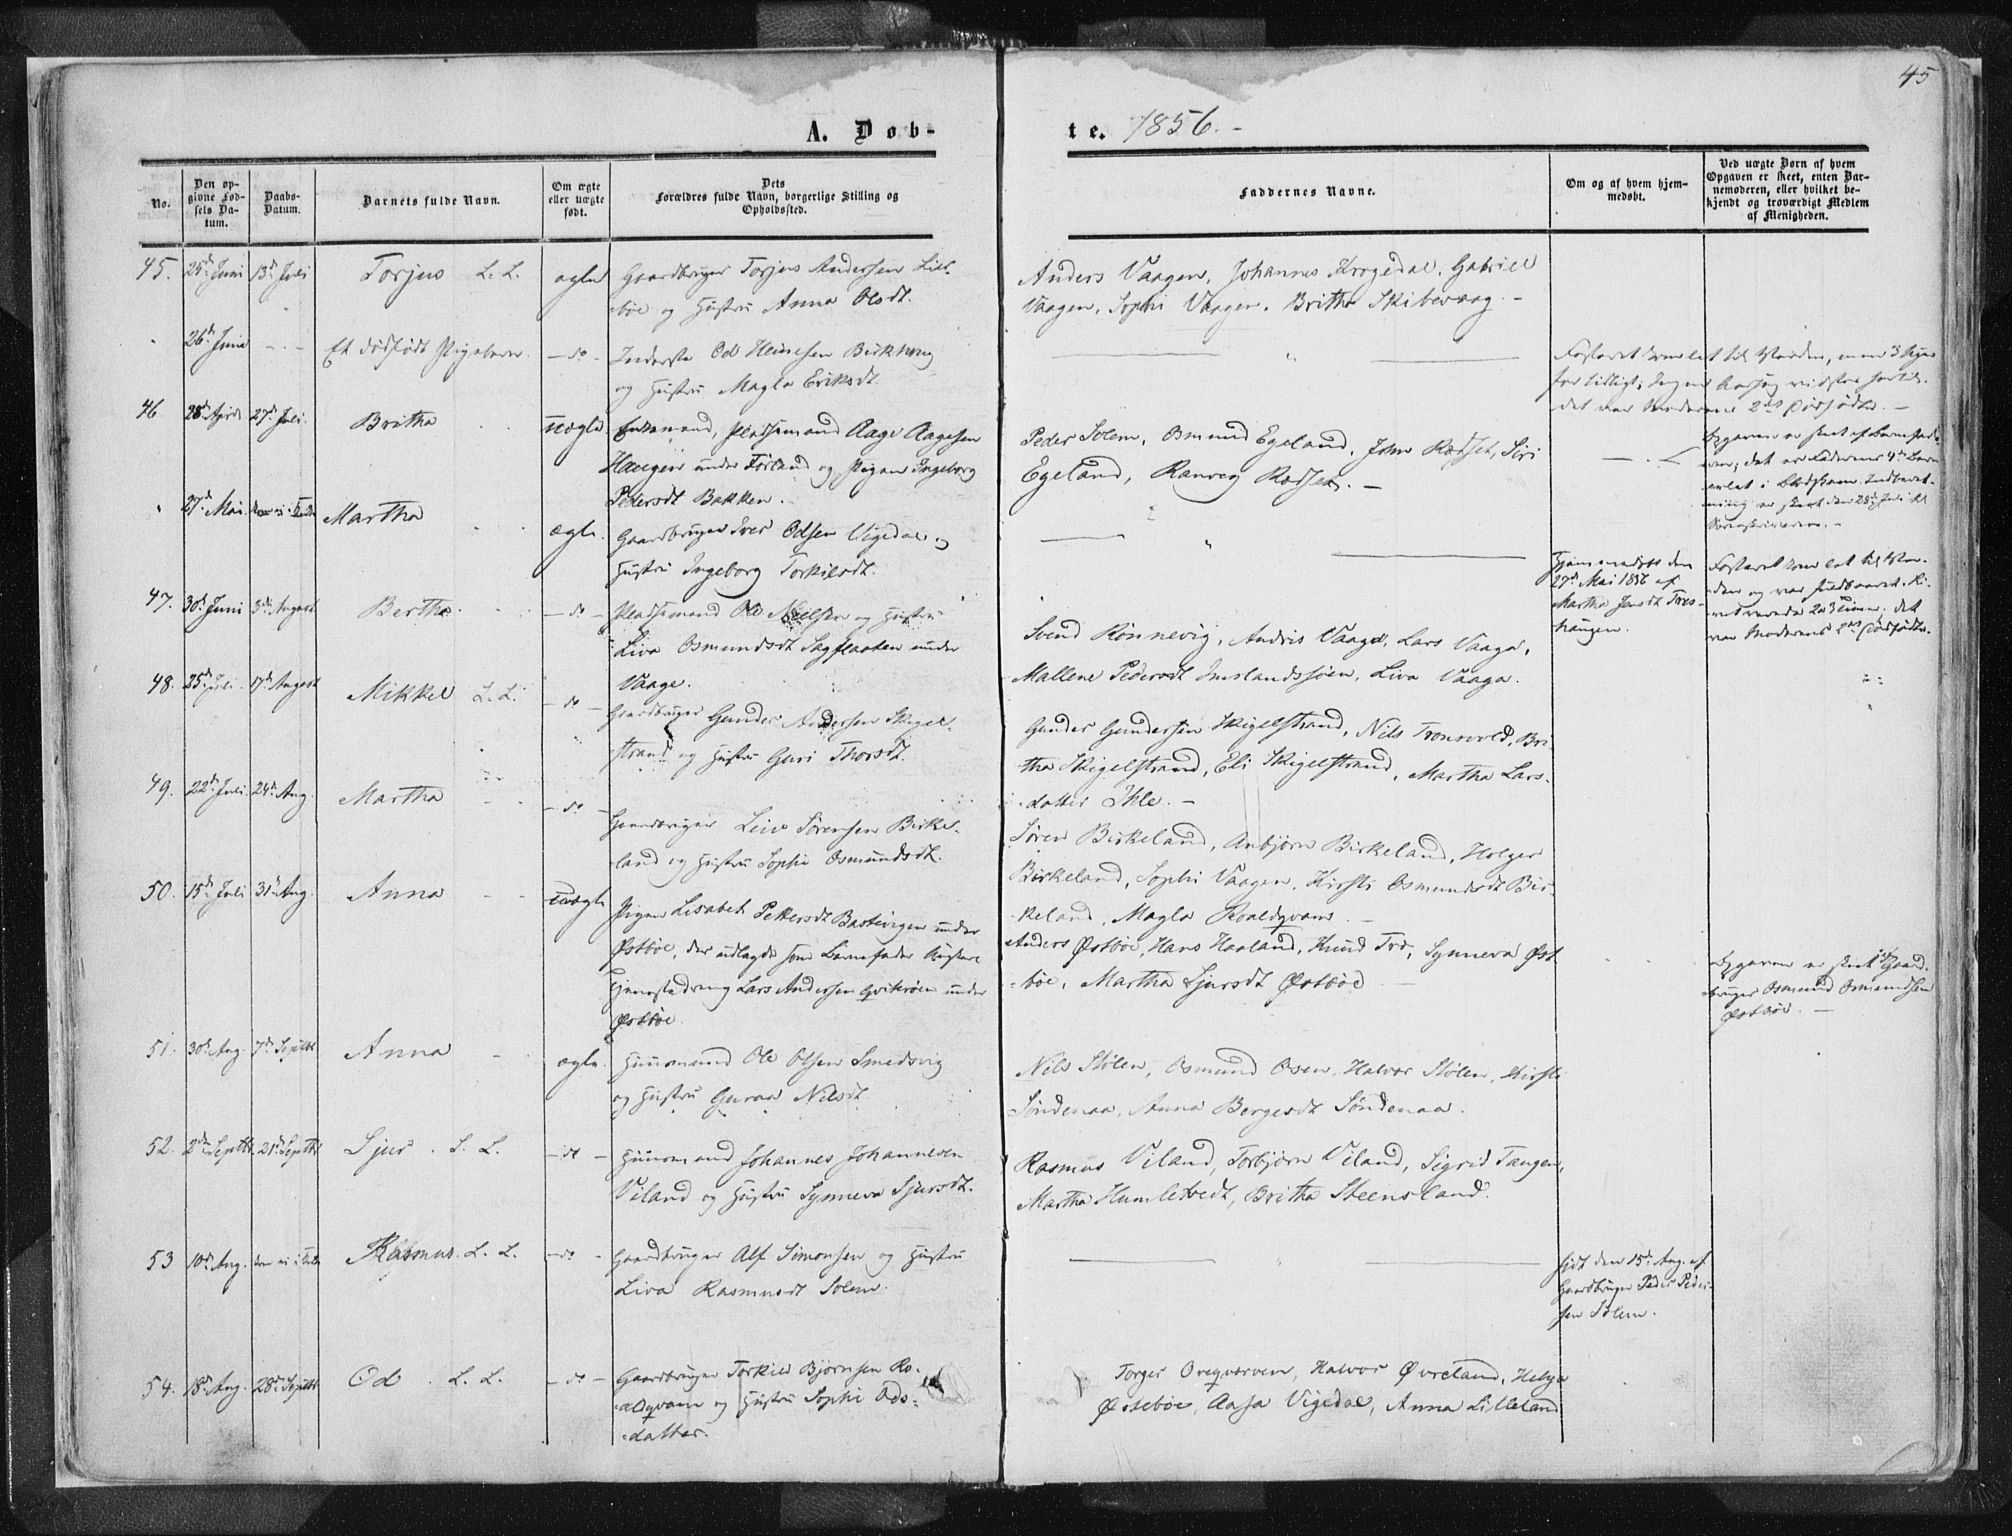 45
A. Døb-
te. 1856. -
No.
Den op-
givne Fød-
sels Da-
tum.
Daabs-
Datum.
Barnets fulde Navn.
Om ægte
eller uægte
født.
Dets
Forældres fulde Navn, borgerlige Stilling og
Opholdssted.
Faddernes Navne.
Om og af hvem hjem-
medøbt.
Ved uægte Børn af hvem
Opgaven er skeet, enten Bar-
nemoderen, eller hvilket be-
kjendt og troværdigt Medlem
af Menigheden.
45. 25d Juni 13d Juli Torjus L. L. ægte Gaardbruger Torjus Andersen
og Hustru Anna Olsdt.
Anders Vaagen, Johannes Krogedal, Gabriel
Vaagen, Sophi Vaagen, Britha Skibevaag. -
26d Juni - . - Et dødfødt Pigebarn. - do - Inderste Od Heinesen
og Hustru Magla Eriksdt.
Fosteret kom let til Verden, men 3 Uger
for tidligt; Ingen Aarsag vidstes
det var Moderens 2det Dødfødte. -
46 28d April 27d Juli. Britha uægte Enkemand, Pladsmand Aage Aagesen
Haugen under Førland og Pigen Ingeborg
Pedersdt Bakken. -
Peder Solem, Osmund Egeland, John Rødset, Siri
Egeland, Ranveg Rødset. -
Opgaven er skeet af
det er Faderens 4de Barn
avlet i
er skeet den 28d Juli til
27d Mai. Martha ægte. Gaardbruger Iver Odsen Vigedal og
Hustru Ingeborg Torkilsdt.
Hjemmedøbt den
27d Mai 1856 af
Martha Jensdt
haugen.
Fosteret kom let til Ver-
den og var
2 a 3 Timer. Det
var Moderens 2det Dødfødte.
47. 30d Juni 3die August Bertha - do - Pladsmand Ole Nielsen og Hustru
Liva Osmundsdt Sagflaaten under
Vaage.
Svend Rønnevig, Andris Vaage, Lars Vaaga,
Mallene Pedersdt Imslandssjøen, Liva Vaaga.
48. 25d Juli. 17d August Mikkel L. L. - do - Gaardbruger Gunder Andersen Skigel-
strand og Hustru Guri Thorsdt.
Gunder Gundersen Skigelstrand, Nils Tronsvold, Bri-
tha Skigelstrand, Eli Skigelstrand, Martha Lars-
datter Ihle. -
49. 22d Juli 24d Aug. Martha - do - Gaardbruger Leiv Sørensen Birke-
land og Hustru Sophi Osmundsdt.
Søren Birkeland, Anbjørn Birkeland, Holger
Birkeland, Sophi Vaagen, Kirsti Osmundsdt Bir-
keland, Magla Roaldqvam. -
50. 15d Juli 31d Aug. Anna uægte Pigen Lisabet Pettersdt Bastivigen under
Østbøe, der udlagde som Barnefader
Tjenestedreng Lars Andersen under
Østbøe.
Anders Østbøe, Hans Haaland, Knud Trø, Synneva Øst-
bøe, Martha Sjursdt Østbøe -
Opgaven er skeet af Gaard-
bruger Osmund Osmundsen
Østbøe. -
51. 30d Aug. 7d Septbr Anna ægte. Huusmand Ole Olsen Smedsvig
og Hustru Guroa Nilsdt.
Nils Stølen, Osmund Osen, Halvor Stølen, Kirsti
Søndenaa, Anna Bergesdt Søndenaa.
52. 2den Septbr. 21d Septbr Sjur . L. L. - do - Huusmand Johannes Johannesen
Viland og Hustru Synneva Sjursdt.
Rasmus Viland, Torbjørn Viland, Sigrid Tangen,
Martha Humletvedt, Britha Steensland.
53 10d Aug. Rasmus. L. L. - do - Gaardbruger Alf Simonsen og Hustru
Liva Rasmusdt Solem.
født den 15d Aug. af
Gaardbruger Peder Peder-
sen Solem.
54. 18d Aug. 28d Septbr. Od . L. L. - do - Gaardbruger Torkild Bjørnsen Ro-
aldqvam og Hustru Sophi Ods-
datter.
Torger Oreqværven, Halvor Øvreland, Helga
Østebøe, Aasa Vigedal, Anna Lilleland